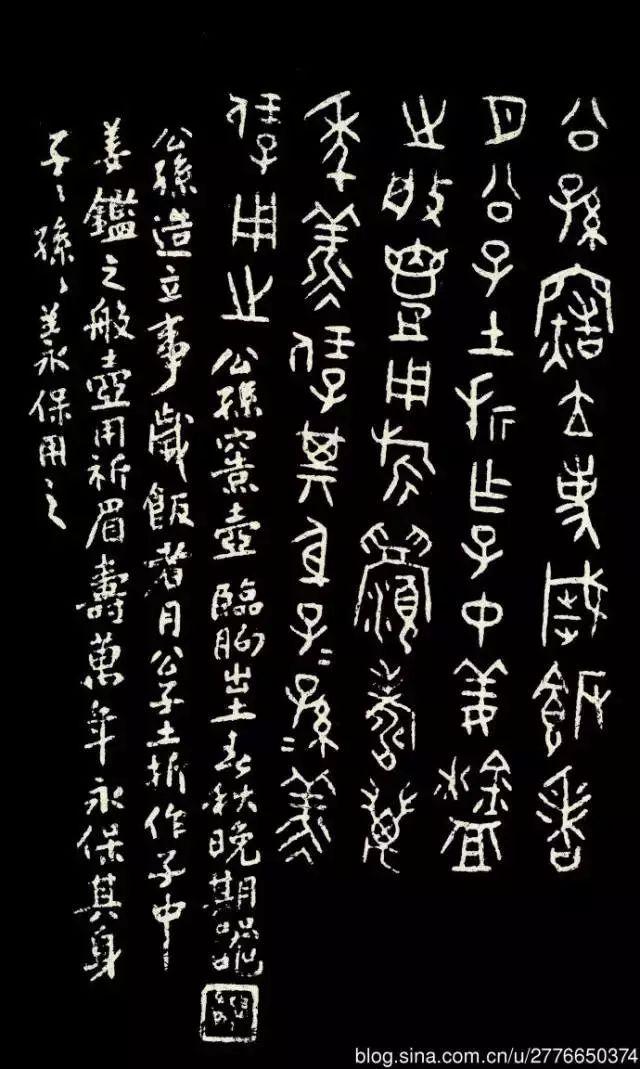 公孫竈立事歲飯者
月公子土折乍子中姜
之般壺用旂眉壽萬
年羕保其身子〻孫〻羕
保用之 公孫竈壺 臨朐出土春秋晚期器
公孫造立事歲飯者月公子土折作子中
姜鑑之般壺用祈眉壽萬年永保其身
子〻孫〻羕保用之
blog.sina.com.cn/u/2776650374